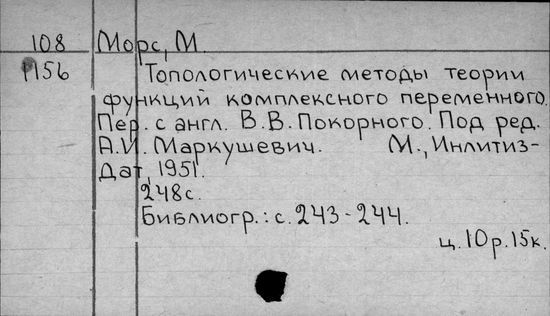 108 Морс, М.
М156 Топологические методы теории
функций комплексного переменного.
Пер. с англ. В.В. Покорного. Под ред.
А.И. Маркушевич. М., Инлитиз-
дат, 1951.
248с.
Библиогр.: с. 243-244.
ц. 10р. 15к.